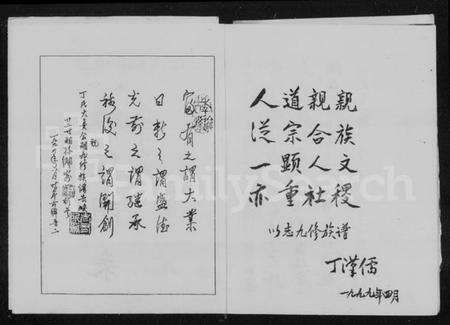 人道親親
從宗合族
一顯人文
亦重社稷
以志九修族谱
丁漢儒
一九九九年四月
富有之謂大業
日新之謂盛德
光前之謂繼承
裕後之謂開創
FamilySearch